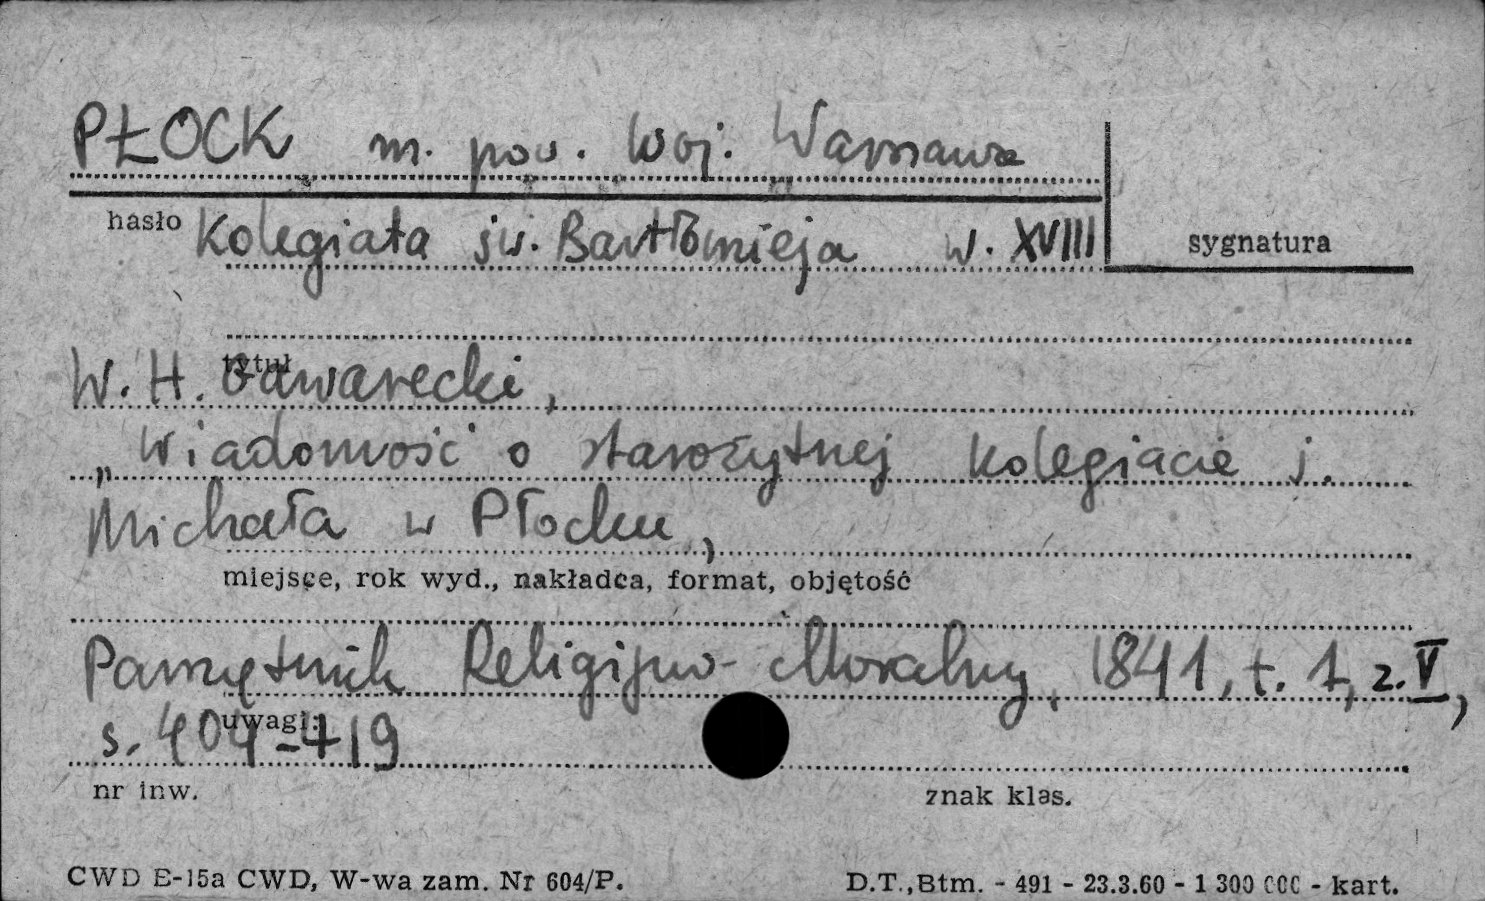 PŁOCK m. pow. woj. Warszawa
hasło Kolegiata św. Bartłomieja w. XVIII
sygnatura
tytuł
W. H. Gawarecki,
„Wiadomość o starożytnej kolegiacie ś.
Michała w Płocku,
miejsce, rok wyd., nakładca, format, objętość
Pamiętnik Religijno-Moralny, 1841, t. 1, z. V,
uwagi:
s. 404-419
nr inw. znak klas.
CWD E-15a CWD, W-wa zam. Nr 604/P. D.T.,Btm. - 491 - 23.3.60 - 1 300 000 - kart.